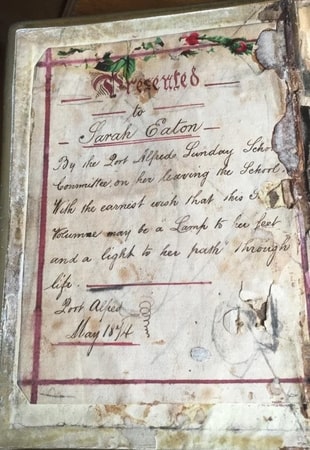 Presented
to
Sarah Eaton
By the Port Alfred Sunday Scho
Committee, on her leaving the School.
With the earnest wish that this
Volumne may be a Lamp to her feet
and a light to her path" through
life.
Port Alfred
May 1874